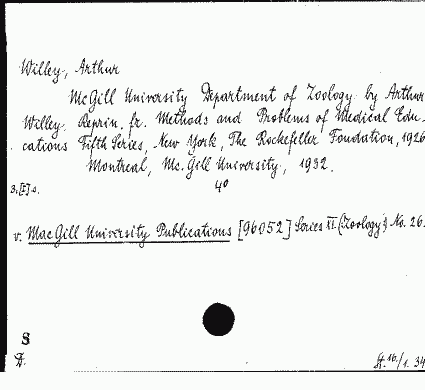 Willey, Arthur
McGill University Department of Zoology by Arthur
Willey. Reprin. fr. Methods and Problems of Medical Edu-
cations Fifth Series, New York, The Rockefeller Foundation, 1926
Montreal, Mc. Gill University, 1932.
3,[1] s. 4°
v. MacGill University Publications [96052] Series XI. (Zoology) No. 26.
8
D. 16/1. 34